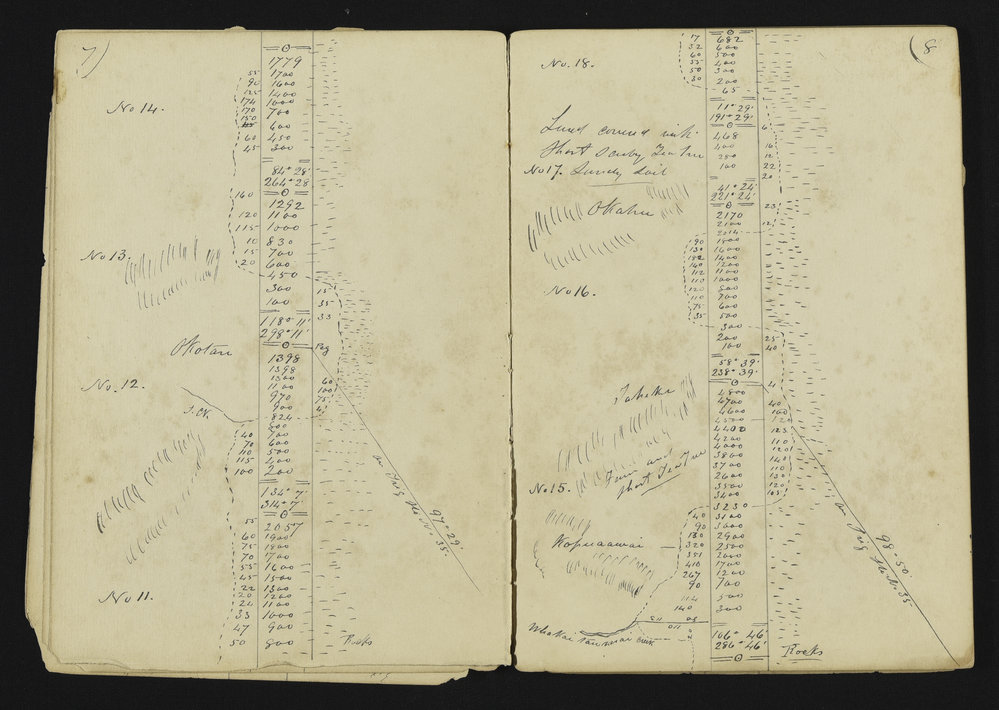 7)
1779
55 1700
90 1600
125 1400
174 1000
No 14.
170 700
150
600
60 450
45 300
84° 28'
264° 28
160
1292
120 1100
115 1000
10 830
No 13.
15 700
20 600
450
300 15
100 35
33
118° 11'
298° 11'
Okotau
Peg
1398
1398
1300 60
No. 12.
1100 100
970 75
900
824
800
40 700
70 600
110 500
115 400
100 200
on Trig Stn No. 35.
97° 29'
134° 7'
314° 7'
55
2057
60 1900
75 1800
70 1700
55 1600
45 1500
22 1300
20 1200
No 11.
20 1100
33 1000
47 900
50 800
Rocks
(8
7 682
32 600
60 500
No. 18.
55 400
50 300
30 200
65
11° 29'
191° 29'
Land covered with
468
400 16
Short Scruby Tea Tree
280 12
100 22
No 17. Sandy Soil
20
41° 24'
221° 24'
Okahu
23
2170
2100 12
2014
190 1800
130 1600
182 1400
140 1200
112 1100
110 1000
No 16.
120 800
110 700
75 600
35 500
300
200 25
100 40
58° 39'
238° 39'
4
4800
4700 40
4600 100
4500 120
4400 123
4200 110
4000 120
3800 140
3700 110
2600 130
Fern and
Short Tea Tree
No 15.
3500 120
3400 105
3230
40 3100
90 3000
130 2900
Kopuaawai
320 2500
351 2000
410 1700
267 1200
90 700
114 500
140 300
on Trig Stn No. 35
98° 50'
110
creek
106° 46'
286° 46'
Rocks